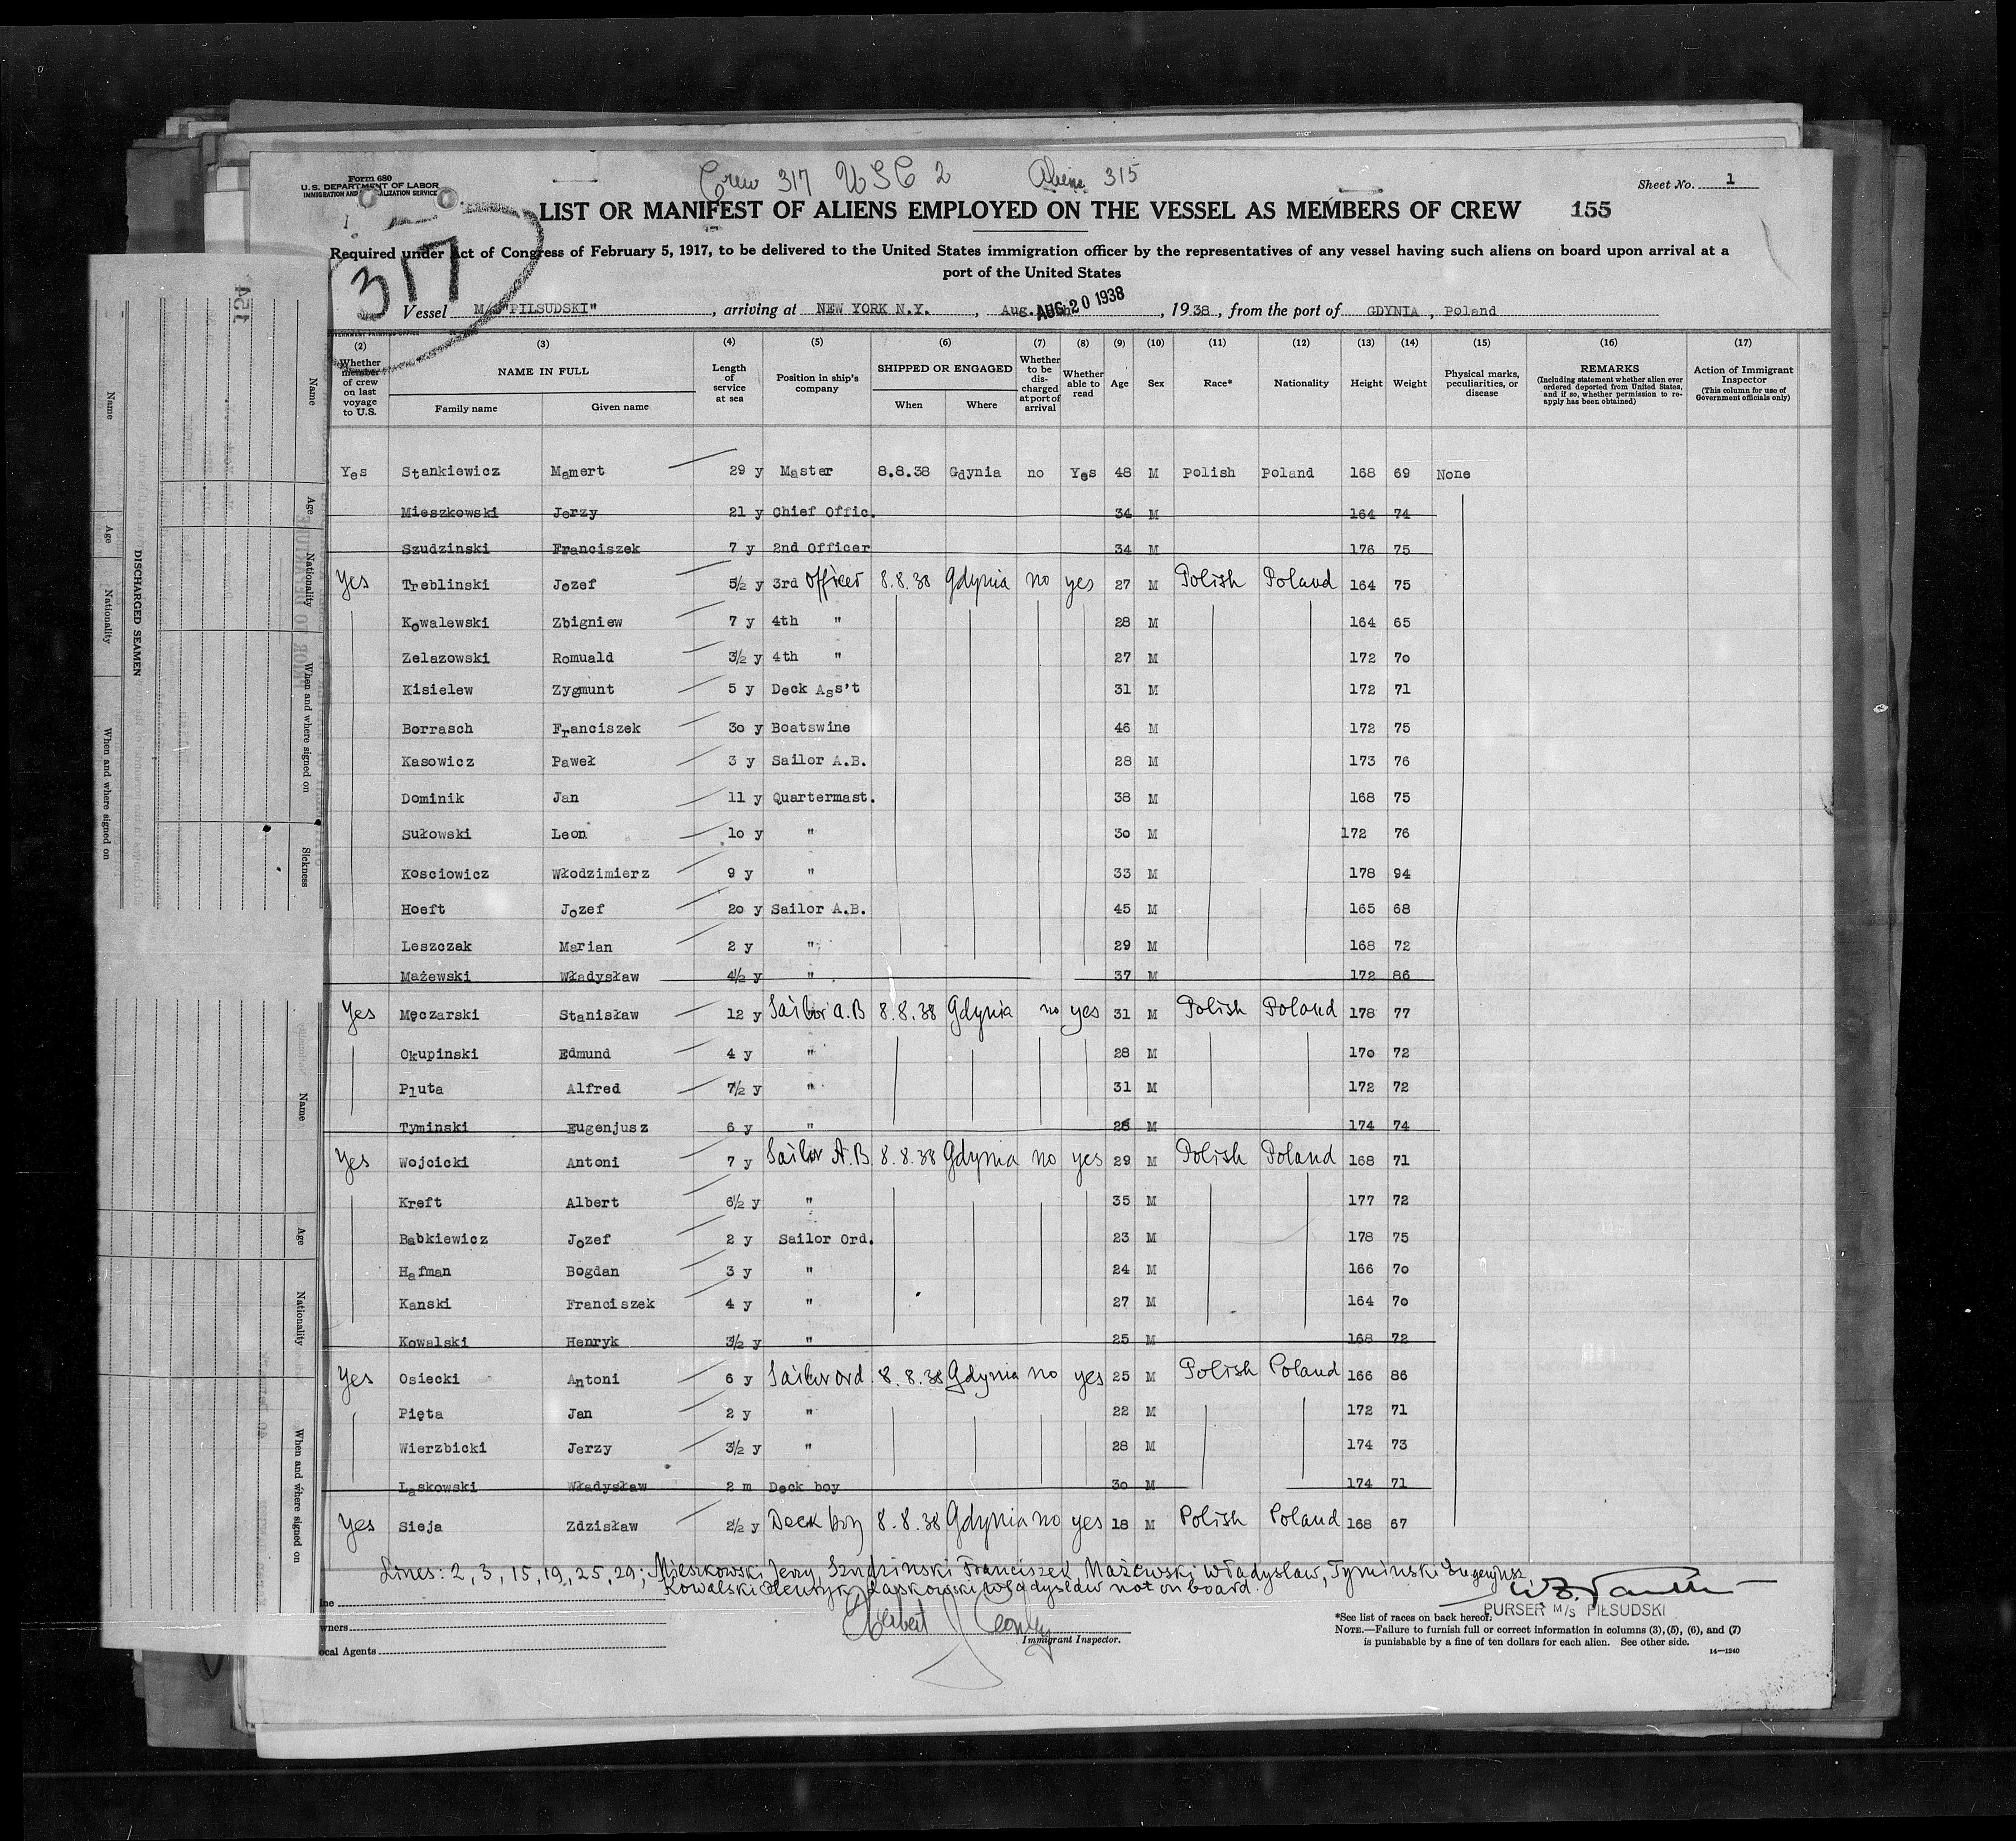 Crew 317 USC 2 Aliens 315
Form 680
U.S. DEPARTMENT OF LABOR
IMMIGRATION AND NATURALIZATION SERVICE
Sheet No. 1
LIST OR MANIFEST OF ALIENS EMPLOYED ON THE VESSEL AS MEMBERS OF CREW 155
Required under Act of Congress of February 5, 1917, to be delivered to the United States immigration officer by the representatives of any vessel having such aliens on board upon arrival at a
port of the United States
317
Vessel M/S "PILSUDSKI", arriving at NEW YORK N.Y., Aug. AUG 20 1938, 1938, from the port of GDYNIA, Poland
(2) (3) (4) (5) (6) (7) (8) (9) (10) (11) (12) (13) (14) (15) (16) (17)
Whether member of crew on last voyage to U.S. NAME IN FULL Family name Given name Length of service at sea Position in ship's company SHIPPED OR ENGAGED When Where Whether to be discharged at port of arrival Whether able to read Age Sex Race* Nationality Height Weight Physical marks, peculiarities, or disease REMARKS (Including statement whether alien ever ordered deported from United States, and if so, whether permission to reapply has been obtained) Action of Immigrant Inspector (This column for use of Government officials only)
Yes Stankiewicz Mamert 29 y Master 8.8.38 Gdynia no Yes 48 M Polish Poland 168 69 None
Mieszkowski Jerzy 21 y Chief Offic. 34 M 164 74
Szudzinski Franciszek 7 y 2nd Officer 34 M 176 75
Yes Treblinski Jozef 5½ y 3rd Officer 8.8.38 Gdynia no yes 27 M Polish Poland 164 75
Kowalewski Zbigniew 7 y 4th " 28 M 164 65
Zelazowski Romuald 3½ y 4th " 27 M 172 70
Kisielew Zygmunt 5 y Deck Ass't 31 M 172 71
Borrasch Franciszek 30 y Boatswine 46 M 172 75
Kasowicz Paweł 3 y Sailor A.B. 28 M 173 76
Dominik Jan 11 y Quartermast. 38 M 168 75
Sułowski Leon 10 y " 30 M 172 76
Kosciowicz Włodzimierz 9 y " 33 M 178 94
Hoeft Jozef 20 y Sailor A.B. 45 M 165 68
Leszczak Marian 2 y " 29 M 168 72
Mażewski Władysław 4½ y " 37 M 172 86
Yes Męczarski Stanisław 12 y Sailor A.B 8.8.38 Gdynia no yes 31 M Polish Poland 178 77
Okupinski Edmund 4 y " 28 M 170 72
Pluta Alfred 7½ y " 31 M 172 72
Tyminski Eugenjusz 6 y " 26 M 174 74
Yes Wojcicki Antoni 7 y Sailor A.B 8.8.38 Gdynia no yes 29 M Polish Poland 168 71
Kreft Albert 6½ y " 35 M 177 72
Babkiewicz Jozef 2 y Sailor Ord. 23 M 178 75
Hafman Bogdan 3 y " 24 M 166 70
Kanski Franciszek 4 y " 27 M 164 70
Kowalski Henryk 3½ y " 25 M 168 72
Yes Osiecki Antoni 6 y Sailor ord. 8.8.38 Gdynia no yes 25 M Polish Poland 166 86
Pięta Jan 2 y " 22 M 172 71
Wierzbicki Jerzy 3½ y " 28 M 174 73
Laskowski Władysław 2 m Deck boy 30 M 174 71
Yes Sieja Zdzisław 2½ y Deck boy 8.8.38 Gdynia no yes 18 M Polish Poland 168 67
Lines: 2, 3, 15, 19, 25, 29; Mieszkowski Jerzy, Szudzinski Franciszek, Mażewski Władysław, Tyminski Eugenjusz
Kowalski Henryk, Laskowski Władysław not on board.
PURSER M/S PIŁSUDSKI
Immigrant Inspector.
*See list of races on back hereof.
NOTE.—Failure to furnish full or correct information in columns (3), (5), (6), and (7)
is punishable by a fine of ten dollars for each alien. See other side.
14—1240
ine
wners
ocal Agents
154
DISCHARGED SEAMEN
Name Age Nationality When and where signed on
Name Age Nationality When and where signed on Sickness
Name Age Nationality When and where signed on